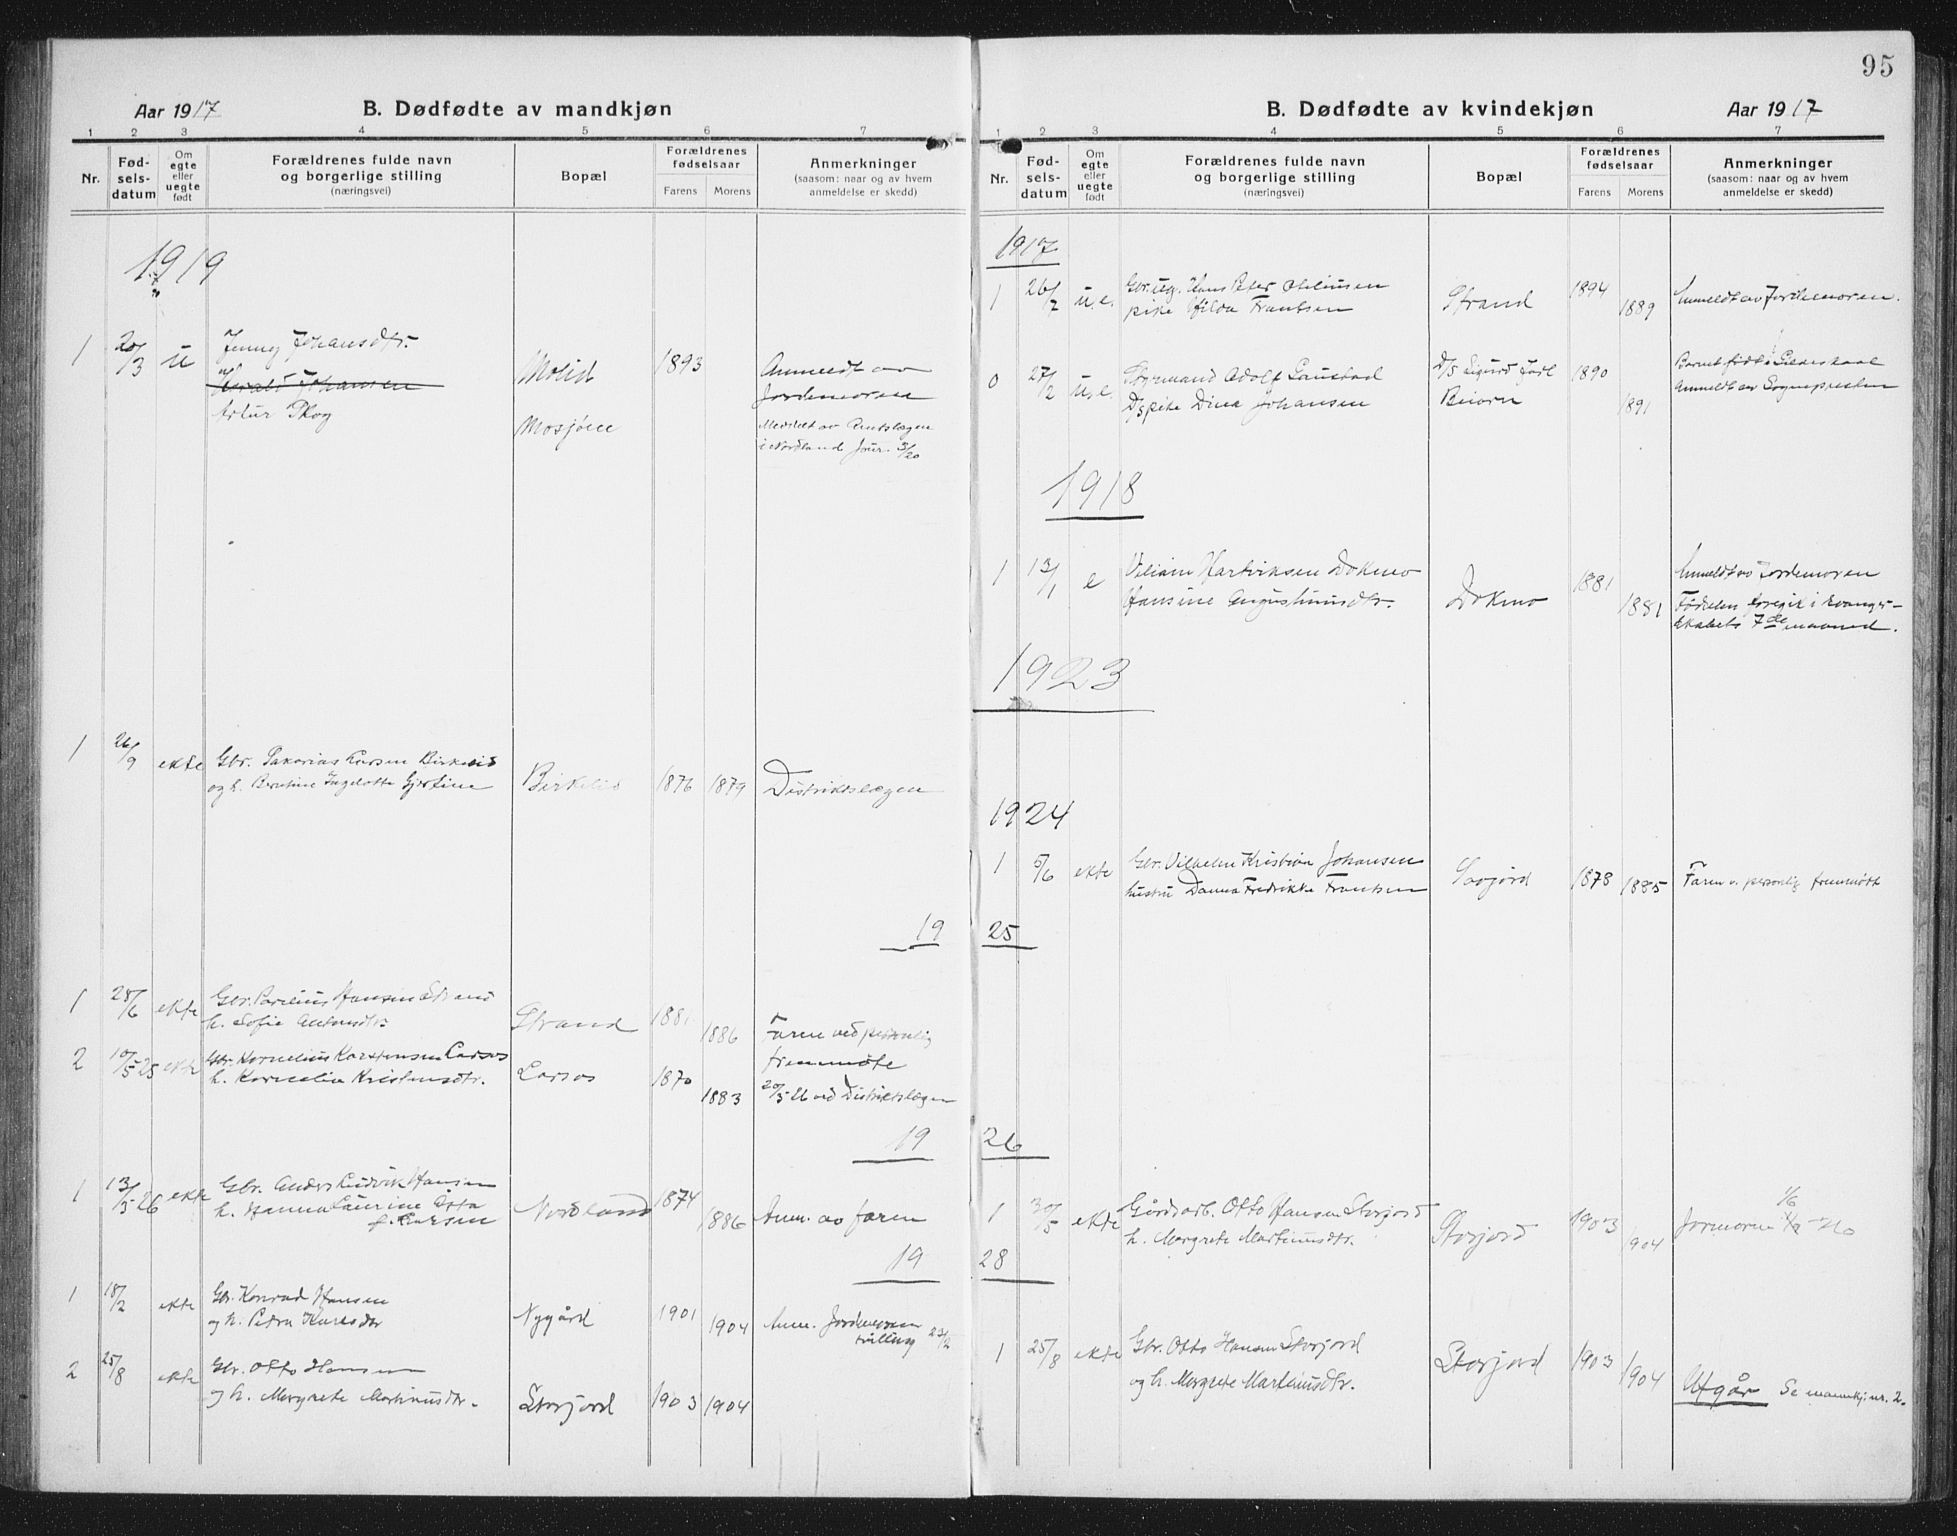 Aar 1917
B. Dødfødte av mandkjøn
1 2 3 4 5 6 7
Nr.
Fød-
sels-
datum
Om
egte
eller
uegte
født
Forældrenes fulde navn
og borgerlige stilling
(næringsvei)
Bopæl
Forældrenes
fødselsaar
Farens Morens
Anmerkninger
(saasom: naar og av hvem
anmeldelse er skedd)
1919
1 20/3 u Jenny Johansdtr. Molid 1893 Anmeldt av
Johansen Jordemoren
Artur Skog Mosjøen
i Nordland Jour. 3/20
1 26/9 ekte Gbr. Sakarias Larsen Birkelid
og h. Berntine Ingelotte Gjertine Birkelid 1876 1879 Distriktslægen
19
1 28/6 ekte Gbr. Hansen Strand
h. Sofie Antonsdtr. Strand 1886 Faren ved personlig
fremmøte
2 10/5 25 ekte Gbr. Kornelius Karstensen Larsos
h. Kornelia Kristensdtr. Larsos 1870 1883 20/5 26 ved Distriktslægen
19
1 13/5 26 ekte Gbr. Anders Ludvik Hansen
h. Hanna Laurine Asta
f. Larsen Nordland 1874 1886 Anm. av faren
19
1 18/2 ekte Gbr. Konrad Hansen
og h. Petra Karlsdtr Nygård 1901 1904 Anm. Jordmoren
tvilling 23/2
2 25/8 ekte Gbr. Otto Hansen
og h. Margrete Martinusdtr. Storjord 1903 1904
95
B. Dødfødte av kvindekjøn
Aar 1917
1 2 3 4 5 6 7
Nr.
Fød-
sels-
datum
Om
egte
eller
uegte
født
Forældrenes fulde navn
og borgerlige stilling
(næringsvei)
Bopæl
Forældrenes
fødselsaar
Farens Morens
Anmerkninger
(saasom: naar og av hvem
anmeldelse er skedd)
1917
1 26/7 u.e. Gbr. ug. Hans Peter
pike Hilda Frantsen Strand 1894 1889 Anmeldt av Jordemoren.
0 27/2 u.e. Styrmand Adolf Saustad D/S Sigurd Jarl 1890 Barnet født i Gildeskaal
pike Dina Johansen Beiarn 1891 Anmeldt av Sognepresten
1918
1 13/1 e Viliam Hartviksen Dokmo
Hansine Augustinusdtr. Dokmo 1881 1881 Anmeldt av Jordemoren
Fødselen foregik i svanger-
skabets 7de maaned.
1923
1924
1 5/6 ekte Gbr. Vilhelm Kristian Johansen
hustru Danna Fredrikke Frantsen Saajord 1878 1885 Faren v. personlig fremmøtt
25
26
1 30/5 ekte Gårdsarb. Otto Hansen Storjord
h. Margrete Martinusdtr. Storjord 1903 1904 Jormoren 1/6
28
1 25/8 ekte Gbr. Otto Hansen Storjord
og h. Margrete Martinusdtr. Storjord 1903 1904 Utgår Se mannkj. nr. 2.